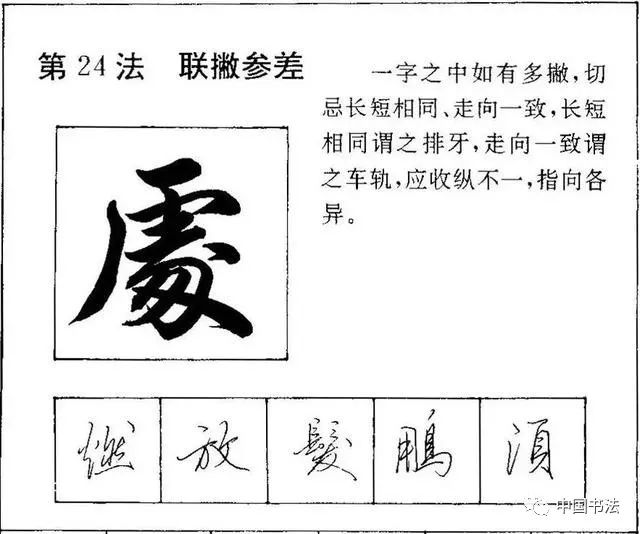 第24法 联撇参差
一字之中如有多撇,切
忌长短相同、走向一致,长短
相同谓之排牙,走向一致谓
之车轨,应收纵不一,指向各
异。
處
燃 放 髮 鵬 須
中国书法